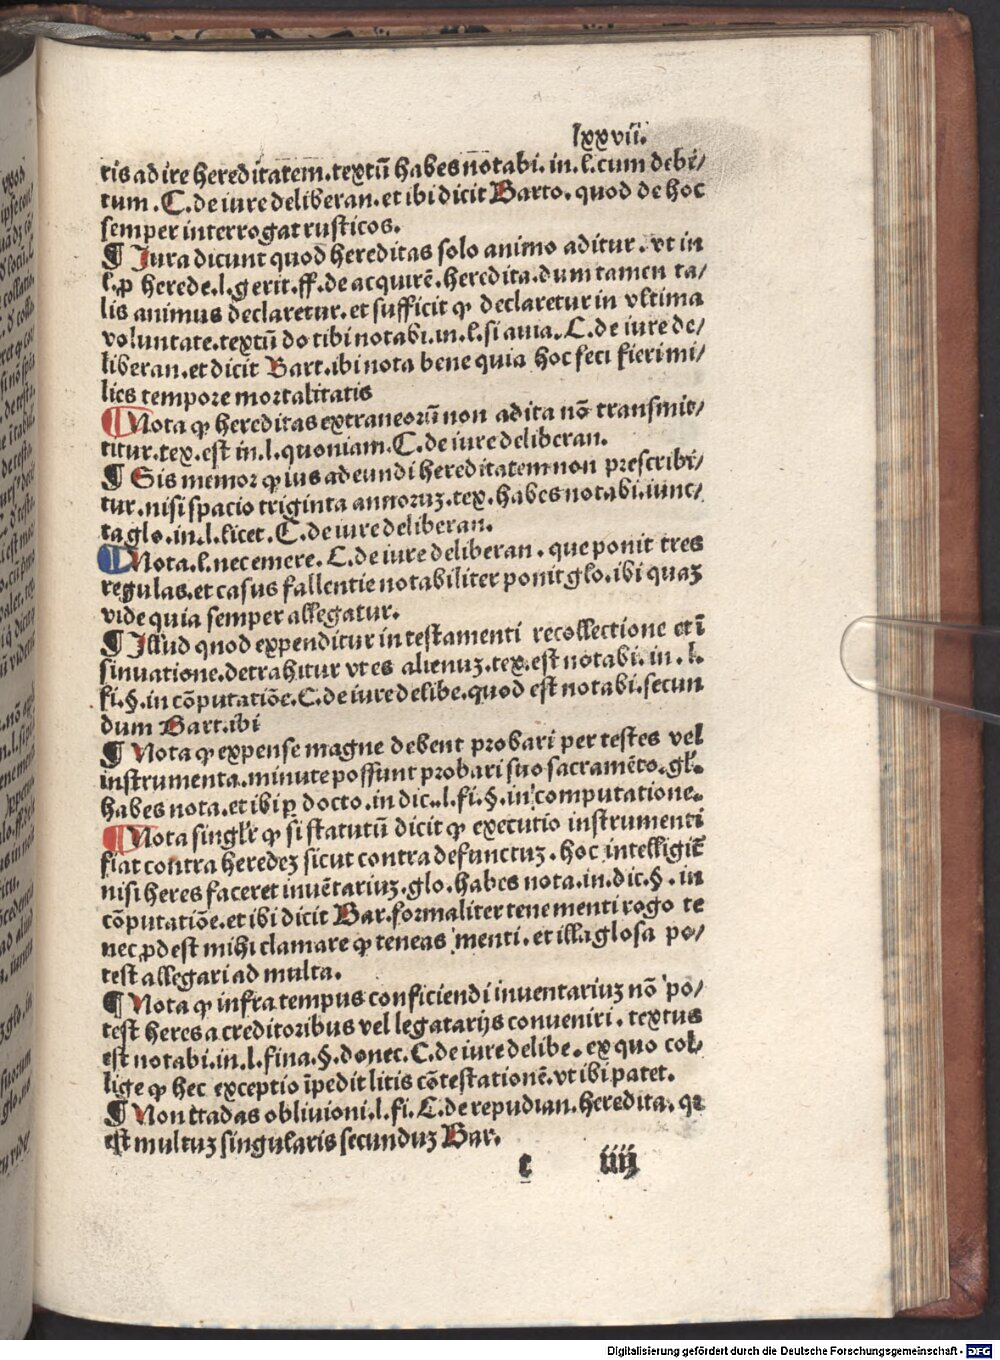 lxxvii.
tis adire hereditatem.textū habes notabi.in.l.cum debi/
tum.C.de iure deliberan.et ibi dicit Barto.quod de hoc
semper interrogat rusticos.
¶ Jura dicunt quod hereditas solo animo aditur.vt in
l.ꝓ herede.l.gerit.ff.de acquirē.heredita.dum tamen ta/
lis animus declaretur.et sufficit ꝙ declaretur in vltima
voluntate.textū do tibi notabi.in.l.si auia.C.de iure de/
liberan.et dicit Bart.ibi nota bene quia hoc feci fieri mi/
lies tempore mortalitatis
¶ Nota ꝙ hereditas extraneorū non adita nō transmit/
titur.tex.est in.l.quoniam.C.de iure deliberan.
¶ Sis memor ꝙ ius adeundi hereditatem non prescribi/
tur.nisi spacio triginta annoruȝ.tex.habes notabi.iunc/
ta glo.in.l.licet.C.de iure deliberan.
¶ Nota.l.nec emere.C.de iure deliberan.que ponit tres
regulas.et casus fallentie notabiliter ponit glo.ibi quaȝ
vide quia semper allegatur.
¶ Illud quod expenditur in testamenti recollectione et ī
sinuatione.detrahitur vt es alienuȝ.tex.est notabi.in.l.
fi.§.in cōputatiōe.C.de iure delibe.quod est notabi.secun
dum Bart.ibi
¶ Nota ꝙ expense magne debent probari per testes vel
instrumenta.minute possunt probari suo sacramēto.gl'.
habes nota.et ibi ꝑ docto.in dic.l.fi.§.in computatione.
¶ Nota singl'r ꝙ si statutū dicit ꝙ executio instrumenti
fiat contra heredeȝ sicut contra defunctuȝ.hoc intelligit̄
nisi heres faceret inuētariuȝ.glo.habes nota.in.dic.§.in
cōputatiōe.et ibi dicit Bar.formaliter tene menti rogo te
nec ꝓdest mihi clamare ꝙ teneas menti.et illa glosa po/
test allegari ad multa.
¶ Nota ꝙ infra tempus conficiendi inuentariuȝ nō po/
test heres a creditoribus vel legatarijs conueniri.textus
est notabi.in.l.fina.§.donec.C.de iure delibe.ex quo col/
lige ꝙ hec exceptio īpedit litis cōtestationē.vt ibi patet.
¶ Non tradas obliuioni.l.fi.C.de repudian.heredita.qꝛ
est multuȝ singularis secunduȝ Bar.
t iiij
Digitalisierung gefördert durch die Deutsche Forschungsgemeinschaft - DFG